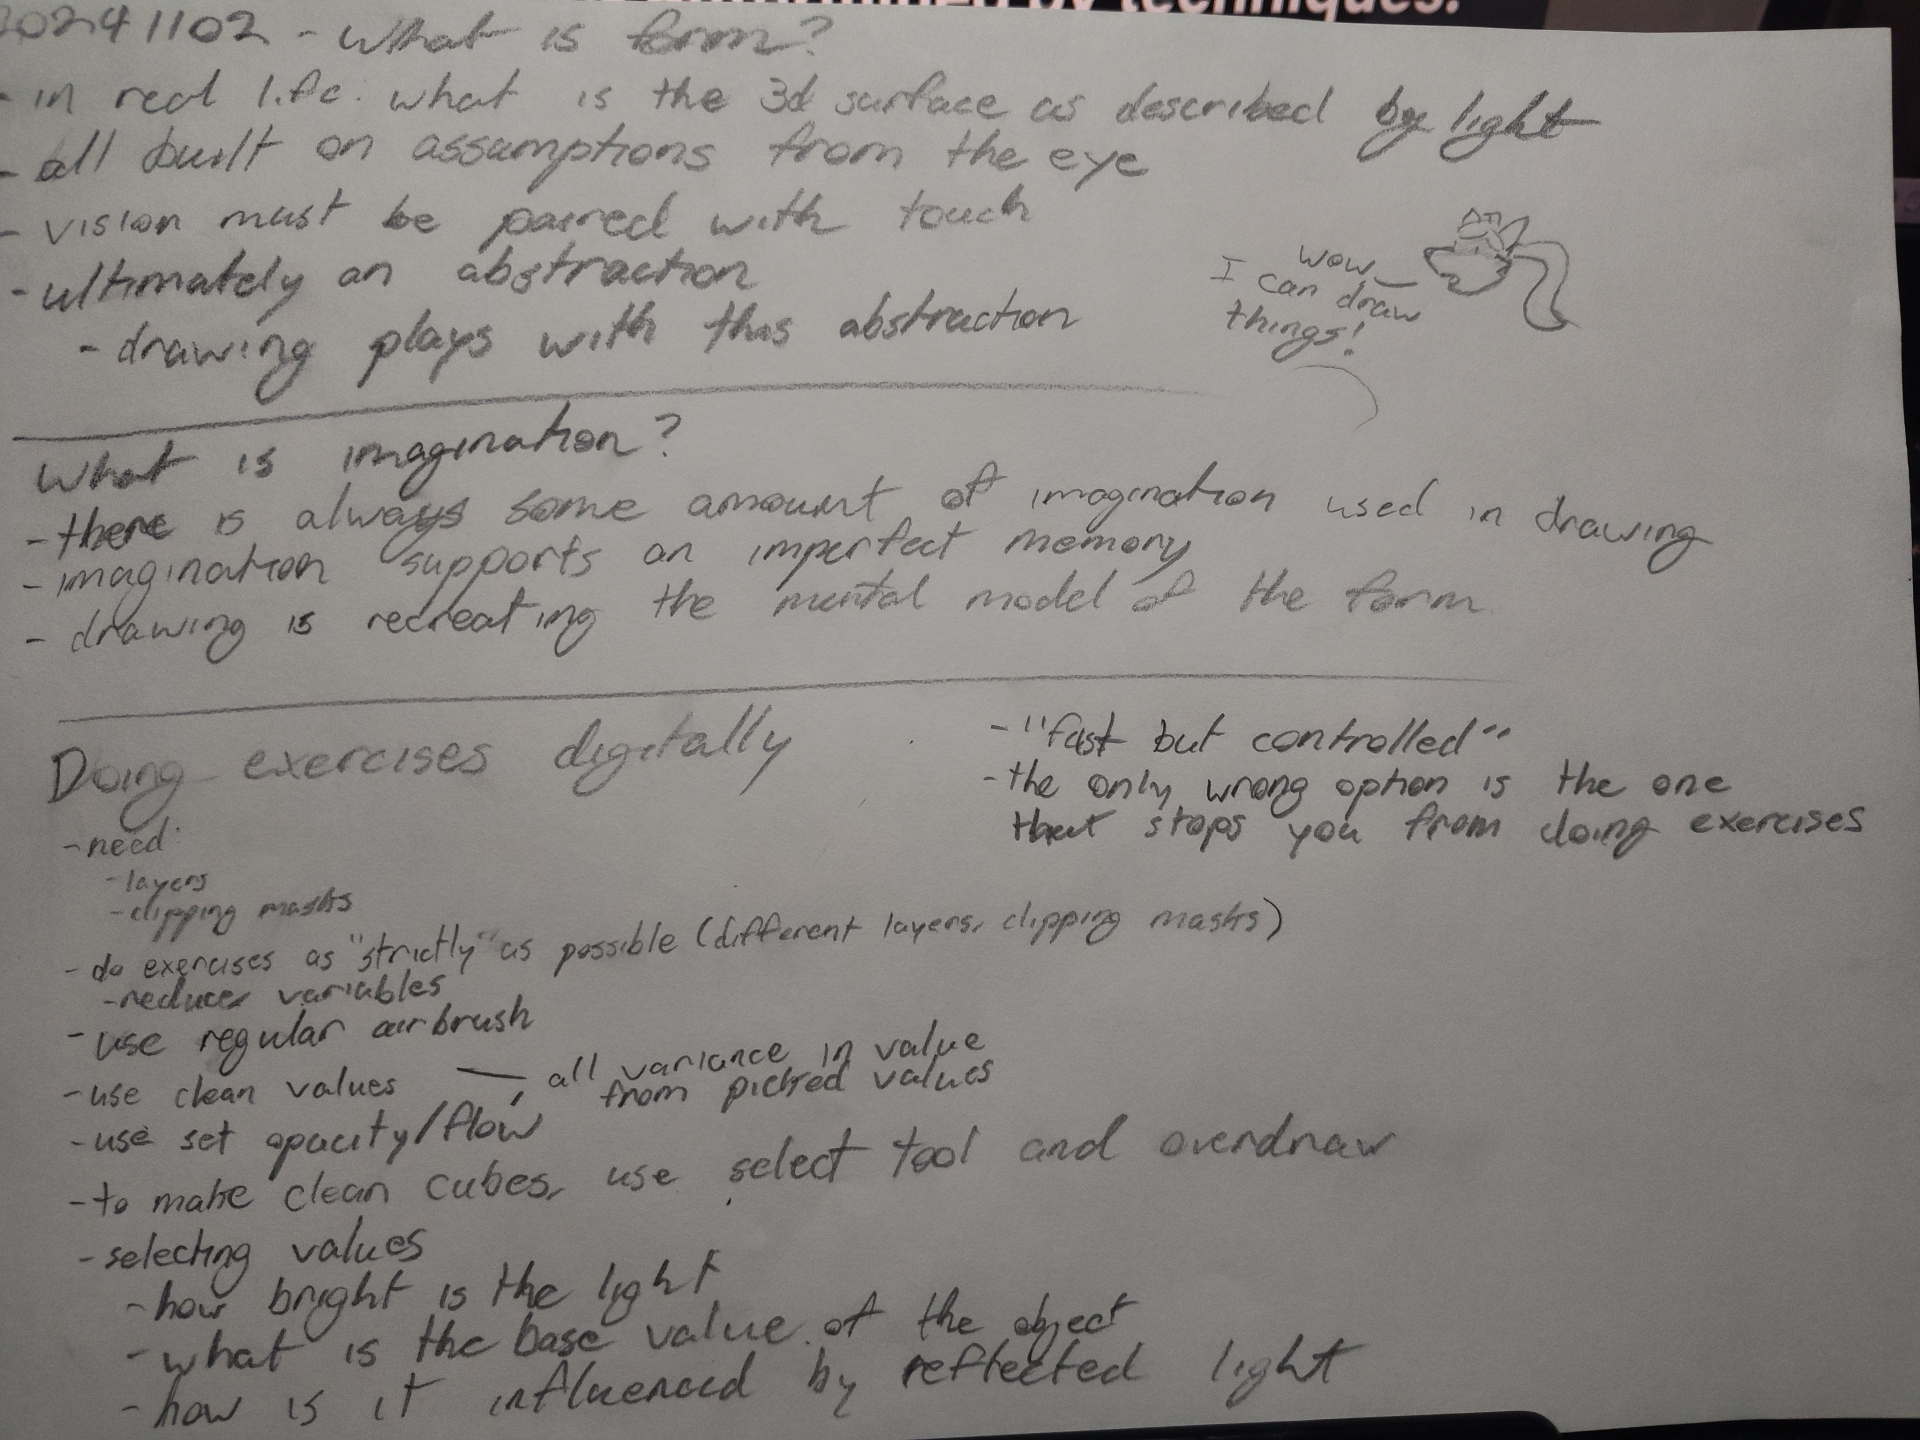 by techniques.
20241102 - What is form?
- in real life. what is the 3d surface as described by light
- all built on assumptions from the eye
- vision must be paired with touch
- ultimately an abstraction
- drawing plays with this abstraction
wow,
I can draw
things!
What is imagination?
- there is always some amount of imagination used in drawing
- imagination supports an imperfect memory
- drawing is recreating the mental model of the form
Doing exercises digitally
- need:
- layers
- clipping masks
- do exercises as "strictly" as possible (different layers, clipping masks)
- reduces variables
- use regular airbrush
- use clean values
- all variance in value
from picked values
- use set opacity/flow
- to make clean cubes, use select tool and overdraw
- selecting values
- how bright is the light
- what is the base value of the object
- how is it influenced by reflected light
- "fast but controlled"
- the only wrong option is the one
that stops you from doing exercises